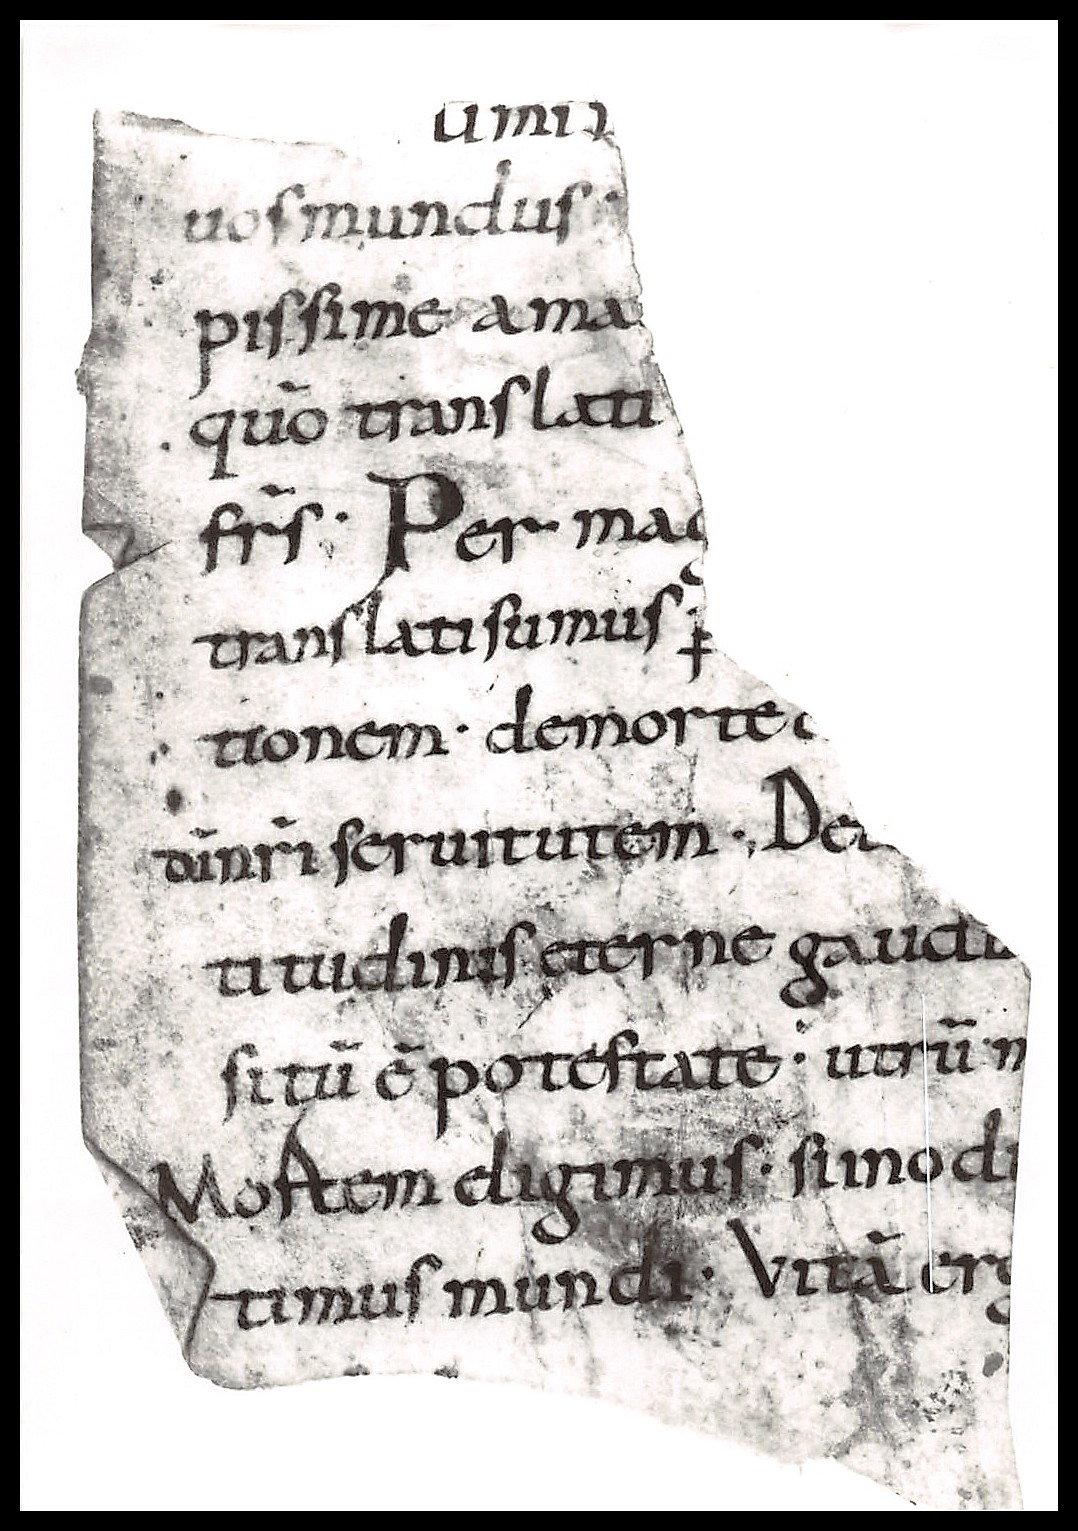 umir
uos mundus
pissime ama
quō translati
fr̄s · Per mag
translati sumus ꝑ
tionem · de morte
dīnr̄i seruitutem · De
titudinis eterne gaudi
situ̅ ē potestate · utrū n
Mortem eligimus · si in odi
timus mundi · Vitā erg